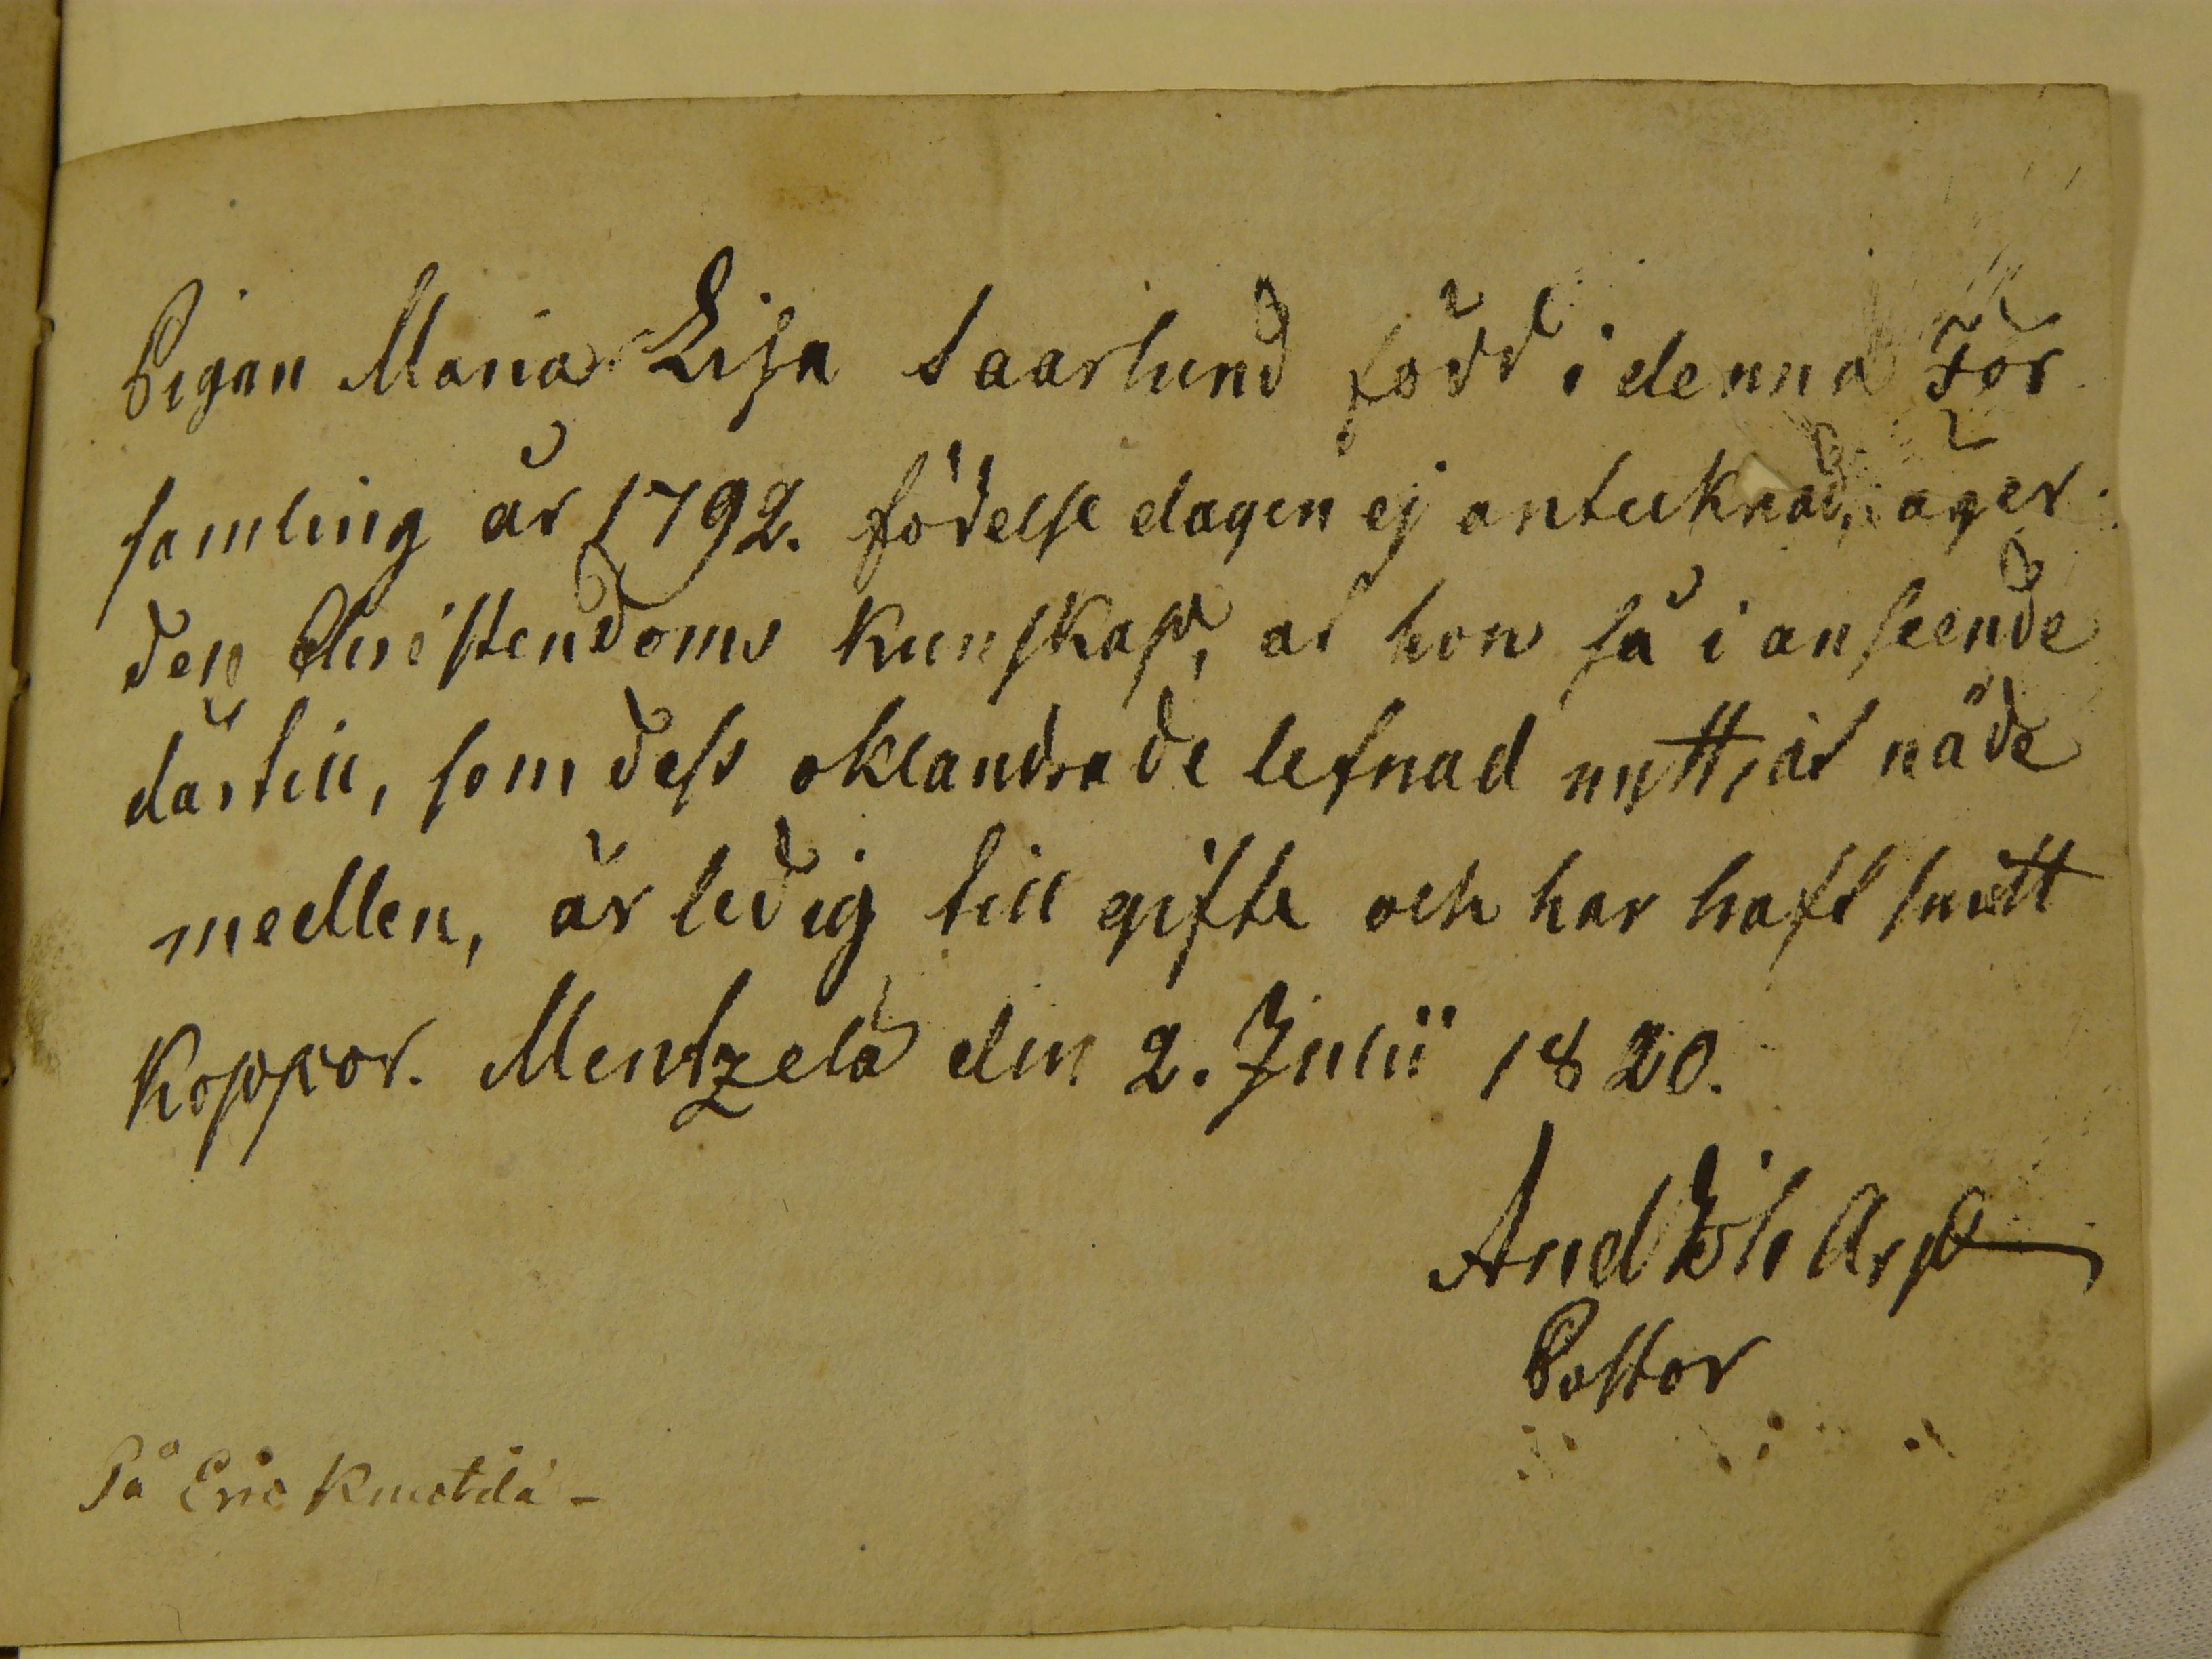 Pigan Maria Lisa Saarlund född i denna För
samling år 1792. födelse dagen ej anteknad, äger
den Christendoms kunskap, at hon så i anseende
därtill, som dess oklandrade lefnad nyttjat nåde
medlen, är ledig till gifte och har haft smått
koppor. Mentzelä den 2. Julii 1820.
And Joh Arpp
Pastor
På Eric